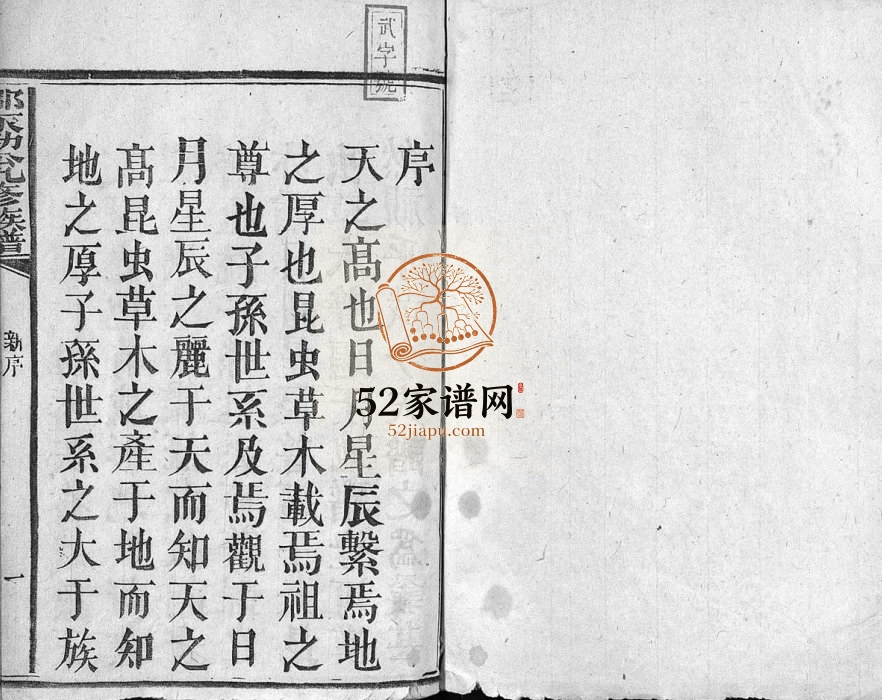 武字號
序
天之髙也日月星辰繫焉地
之厚也昆虫草木載焉祖之
尊也子孫世系及焉觀于日
月星辰之麗于天而知天之
髙昆虫草木之產于地而知
地之厚子孫世系之大于族
修族譜
新序
一
52家谱网
52jiapu.com